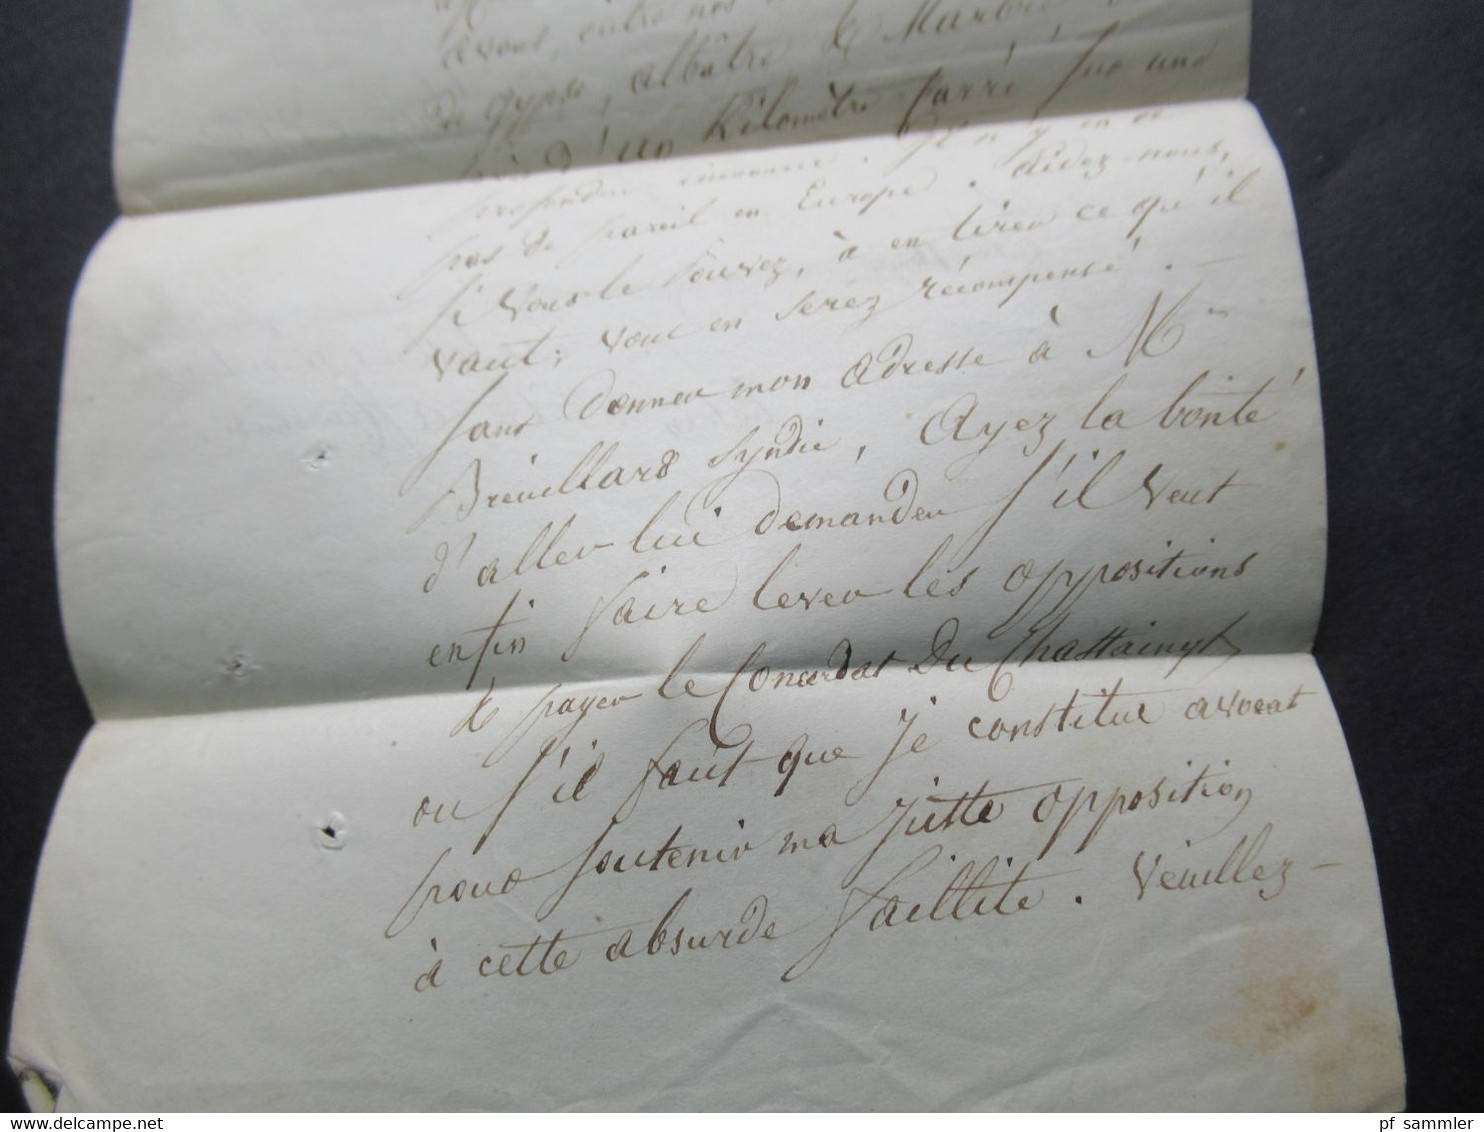 avons, entre nos
de gypse, albâtre & Marbre
près d'un Kilomètre Carré sur une
profondeur immense. Il n'y en a
pas de pareil en Europe. aidez-nous,
si vous le pouvez, à en tirer ce qu'il
vaut; vous en serez récompensé. —
Sans donner mon adresse à Mr
Breuillard Syndic, Ayez la bonté
d'aller lui demander s'il veut
enfin faire lever les oppositions
& payer le Concordat Du Chastaingt
ou s'il faut que je constitue avocat
pour soutenir ma juste opposition
à cette absurde faillite. Veuillez-
© www.delcampe.net
pf_sammler